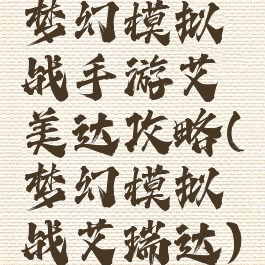 梦幻模拟
战手游艾
美达攻略(
梦幻模拟
战艾瑞达)